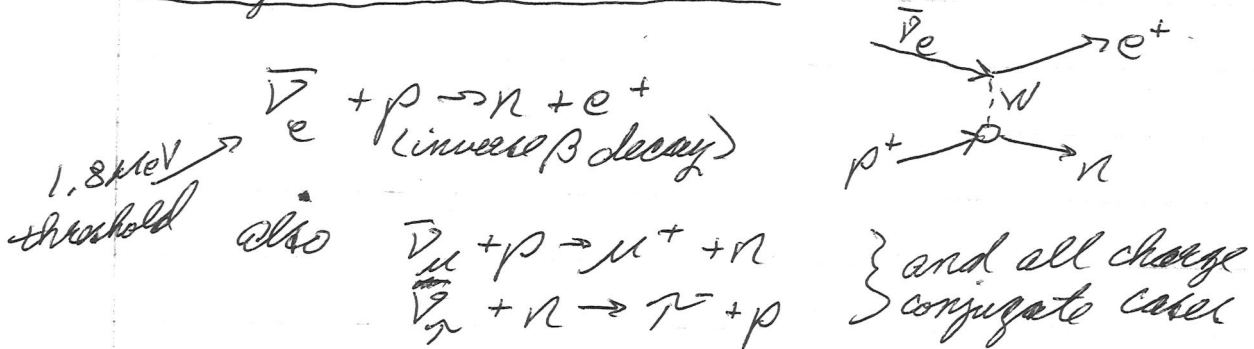 ν̄e + p → n + e⁺
(inverse β decay)
1,8 MeV
threshold
also ν̄μ + p → μ⁺ + n
ν̄τ + n → τ⁻ + p
} and all charge
conjugate cases
ν̄e e⁺
W
p⁺ n